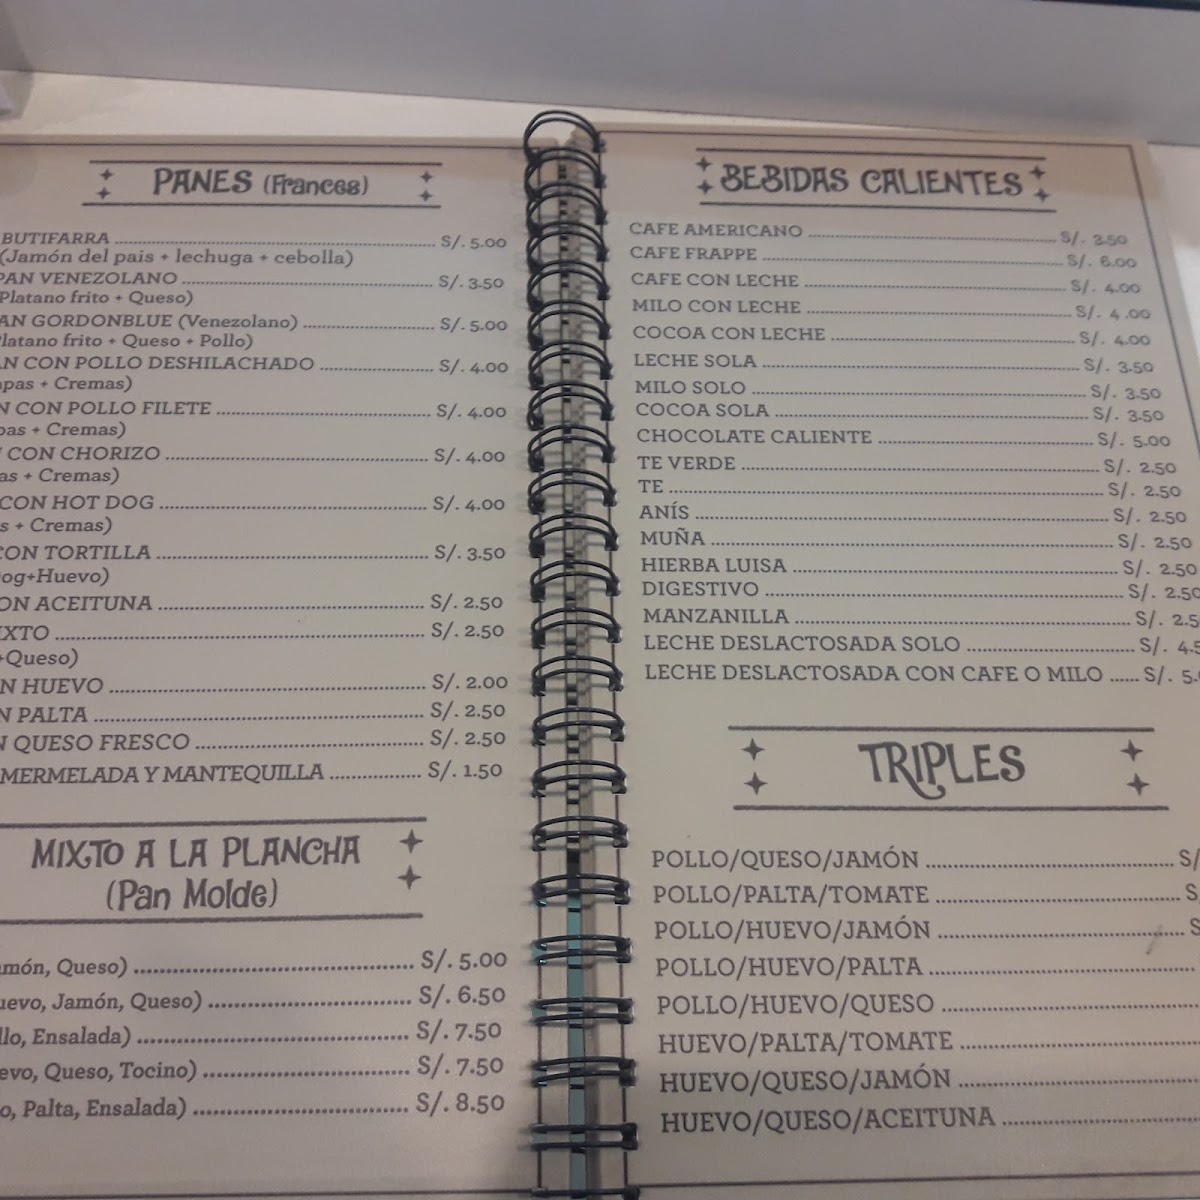 PANES (Frances)
BUTIFARRA S/. 5.00
(Jamón del pais + lechuga + cebolla)
PAN VENEZOLANO S/. 3.50
Platano frito + Queso)
AN GORDONBLUE (Venezolano) S/. 5.00
latano frito + Queso + Pollo)
AN CON POLLO DESHILACHADO S/. 4.00
apas + Cremas)
N CON POLLO FILETE S/. 4.00
pas + Cremas)
CON CHORIZO S/. 4.00
as + Cremas)
CON HOT DOG S/. 4.00
s + Cremas)
CON TORTILLA S/. 3.50
og+Huevo)
ON ACEITUNA S/. 2.50
IXTO S/. 2.50
+Queso)
N HUEVO S/. 2.00
N PALTA S/. 2.50
N QUESO FRESCO S/. 2.50
MERMELADA Y MANTEQUILLA S/. 1.50
MIXTO A LA PLANCHA
(Pan Molde)
amón, Queso) S/. 5.00
uevo, Jamón, Queso) S/. 6.50
llo, Ensalada) S/. 7.50
evo, Queso, Tocino) S/. 7.50
o, Palta, Ensalada) S/. 8.50
BEBIDAS CALIENTES
CAFE AMERICANO S/. 3.50
CAFE FRAPPE S/. 6.00
CAFE CON LECHE S/. 4.00
MILO CON LECHE S/. 4.00
COCOA CON LECHE S/. 4.00
LECHE SOLA S/. 3.50
MILO SOLO S/. 3.50
COCOA SOLA S/. 3.50
CHOCOLATE CALIENTE S/. 5.00
TE VERDE S/. 2.50
TE S/. 2.50
ANÍS S/. 2.50
MUÑA S/. 2.50
HIERBA LUISA S/. 2.50
DIGESTIVO S/. 2.50
MANZANILLA S/. 2.5
LECHE DESLACTOSADA SOLO S/. 4.5
LECHE DESLACTOSADA CON CAFE O MILO S/. 5.
TRIPLES
POLLO/QUESO/JAMÓN S/
POLLO/PALTA/TOMATE S
POLLO/HUEVO/JAMÓN S
POLLO/HUEVO/PALTA
POLLO/HUEVO/QUESO
HUEVO/PALTA/TOMATE
HUEVO/QUESO/JAMÓN
HUEVO/QUESO/ACEITUNA